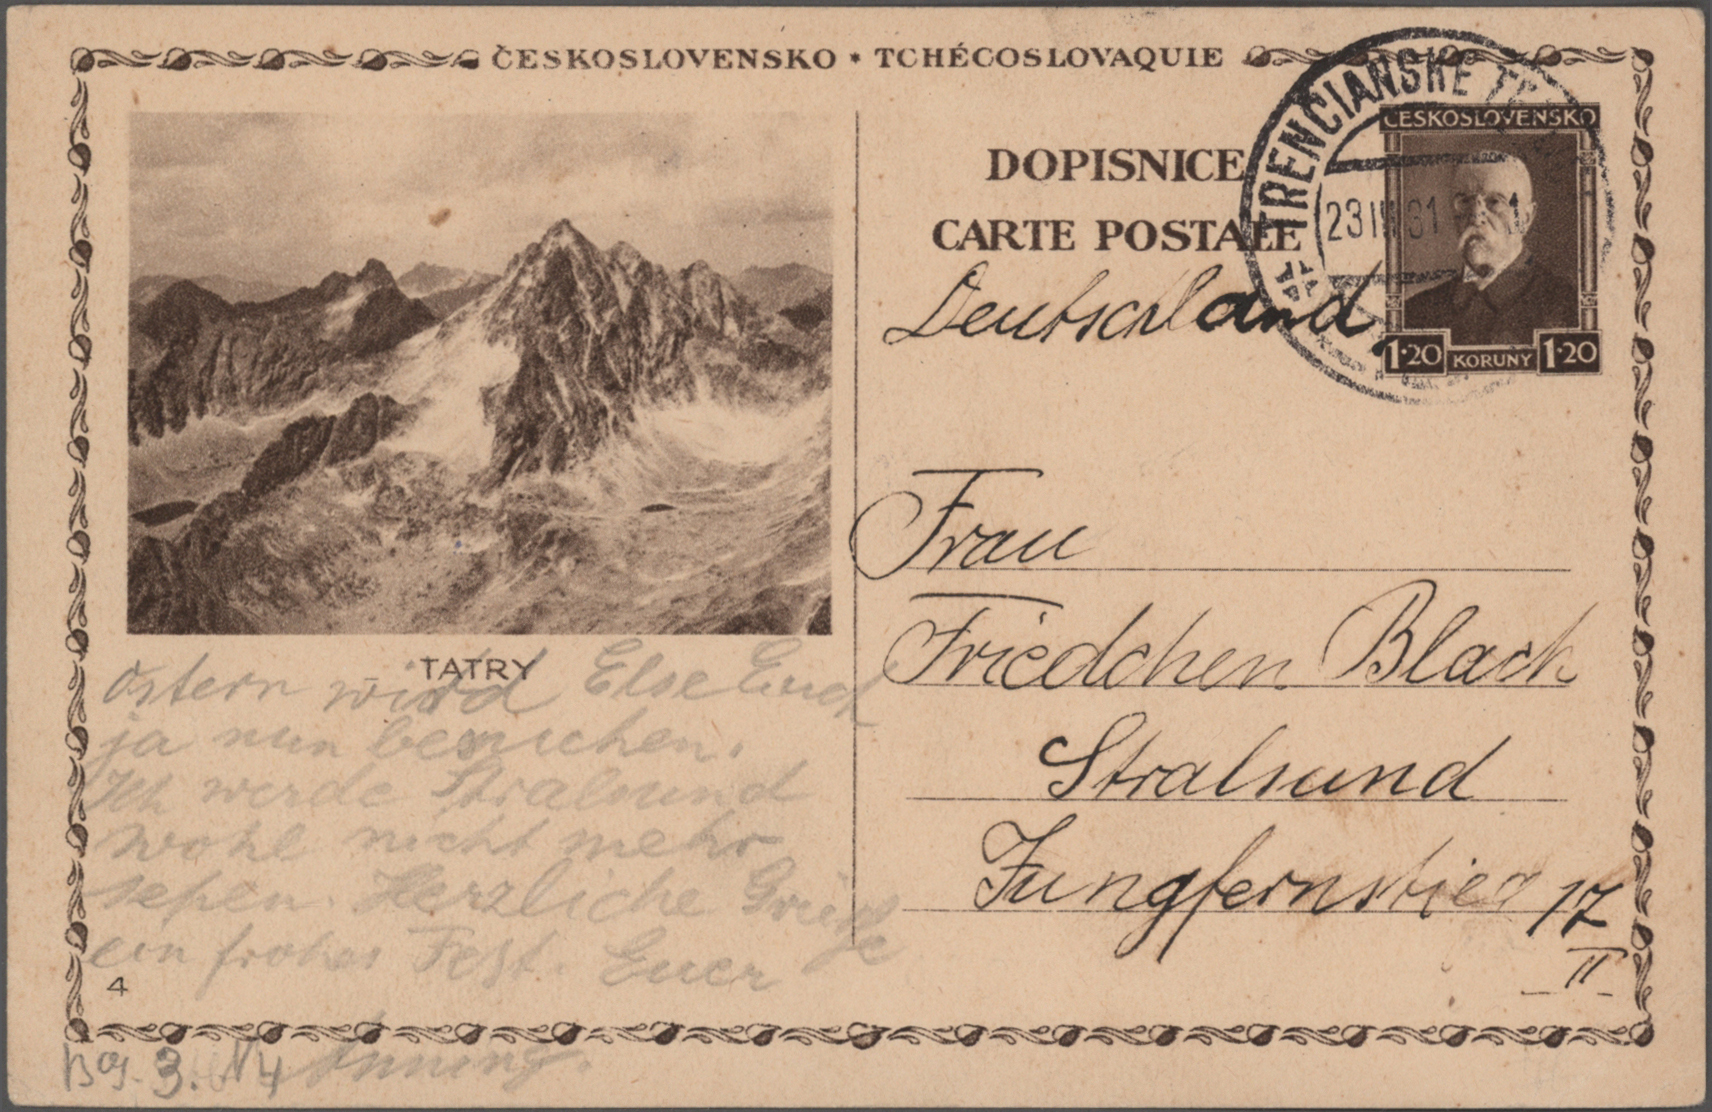 ČESKOSLOVENSKO * TCHÉCOSLOVAQUIE
DOPISNICE
CARTE POSTALE
TRENČIANSKE
23 III 31
ČESKOSLOVENSKO
1·20 KORUNY 1·20
Deutschland
Frau
Friedchen Black
Stralsund
Jungfernstieg 17
II
TATRY
Ostern wird Else Euch
ja nun besuchen.
Ich werde Stralsund
wohl nicht mehr
sehen. Herzliche Grüße
ein frohes Fest. Euer
4